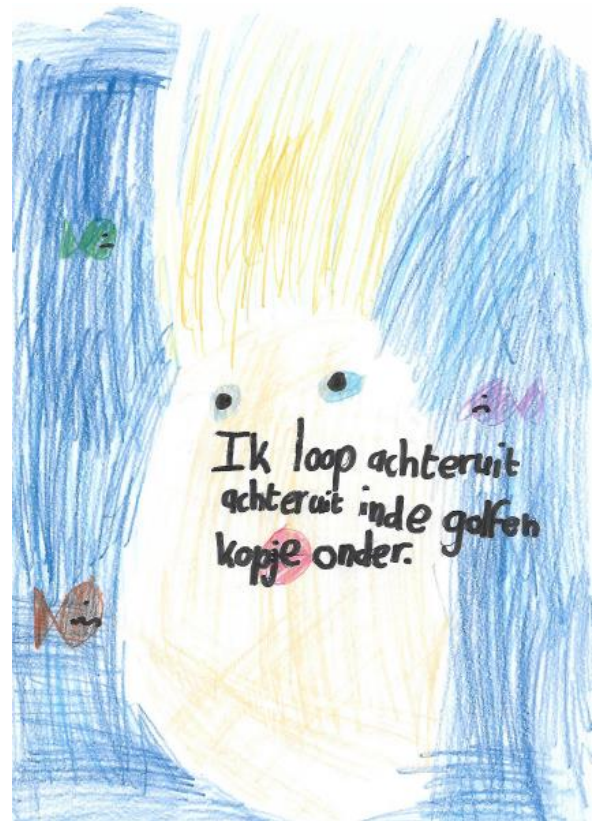 Ik loop achteruit
achteruit inde golfen
kopje onder.